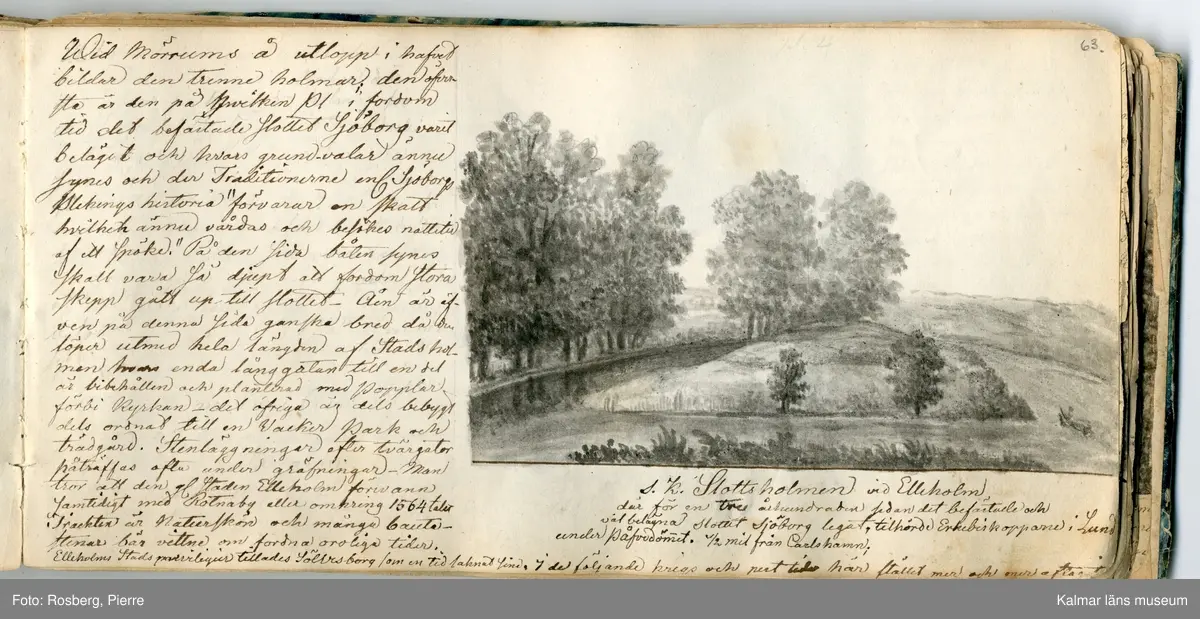 63.
Wid Mörrums å utlopp i hafvet
bildar den trenne holmar, den öfver-
sta är den på hwilken Pl i fordom
tid det befästade slottet Sjöborg varit
beläget och hvars grund-valar ännu
synes och der Traditionerne enl Sjöborgs
Blekings historia "förvarar en skatt
hvilken ännu vårdas och besökes nattetid
af ett spöke." På den sida båten synes
skall vara så djupt att fordom stora
skepp gått up till slottet – Åen är äf-
ven på denna sida ganska bred då den
löper utmed hela längden af Stadshol-
men hvars enda långgatan till en del
är bibehållen och planterad med Popplar
förbi Kyrkan – det öfriga är dels bebygt
dels ordnat till en vacker Park och
trädgård. Stenläggningar efter tvärgator
påträffas ofta under gräfningar – Man
tror att den gl Staden Elleholm försvann
samtidigt med Rotnaby eller omkring 1564 talet
Trackten är Naturskön och många bauta-
stenar bär vittne om fordna oroliga tider.
Elleholms Stads privilegier tillades Sölvesborg som en tid saknat sine. I de följande krigs och pest har stället mer och mer aftagit
s.k. Slottsholmen vid Elleholm
der för en tre århundraden sedan det befästade och
väl belägna slottet Sjöborg legat, tillhörde Erkebiskopparne i Lund
under Påfvedömet. 1/2 mil från Carlshamn.
Foto: Rosberg, Pierre
Kalmar läns museum